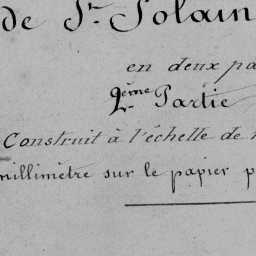 de St. Solain
en deux pa
2ème Partie
Construit à l'échelle de
millimètre sur le papier p